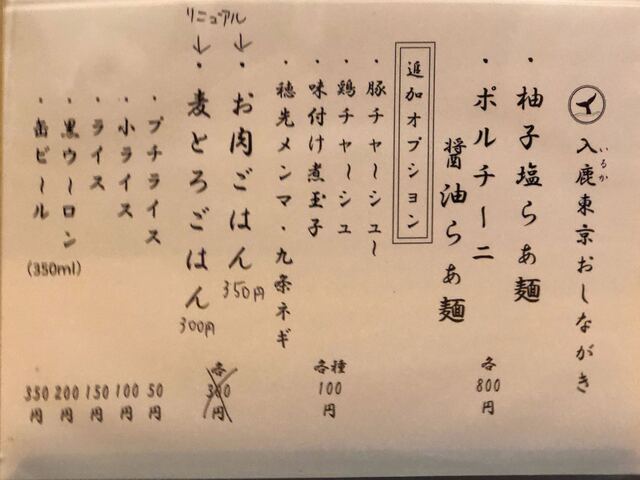 入鹿東京おしながき
いるか
・柚子塩らぁ麺
・ポルチーニ
醤油らぁ麺
各
800
円
追加オプション
・豚チャーシュ～
・鶏チャーシュ
・味付け煮玉子
・穂先メンマ・九条ネギ
各種
100
円
リニュアル
・お肉ごはん
350円
・麦とろごはん
300円
各
300
円
・プチライス
50
円
・小ライス
100
円
・ライス
150
円
・黒ウーロン
200
円
・缶ビール
(350ml)
350
円